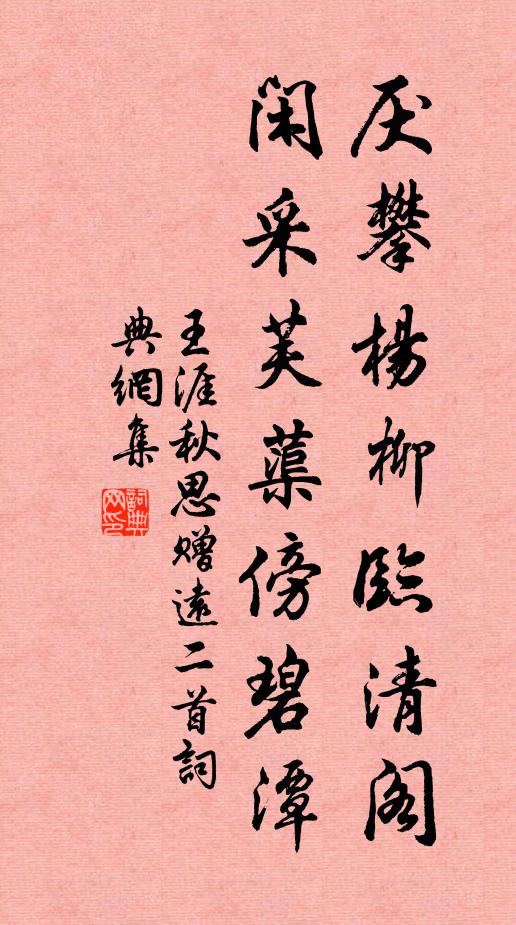 厌攀楊柳臨清阁
闲采芙蕖傍碧潭
王涯秋思赠遠二首詞
典網集
詞典網印